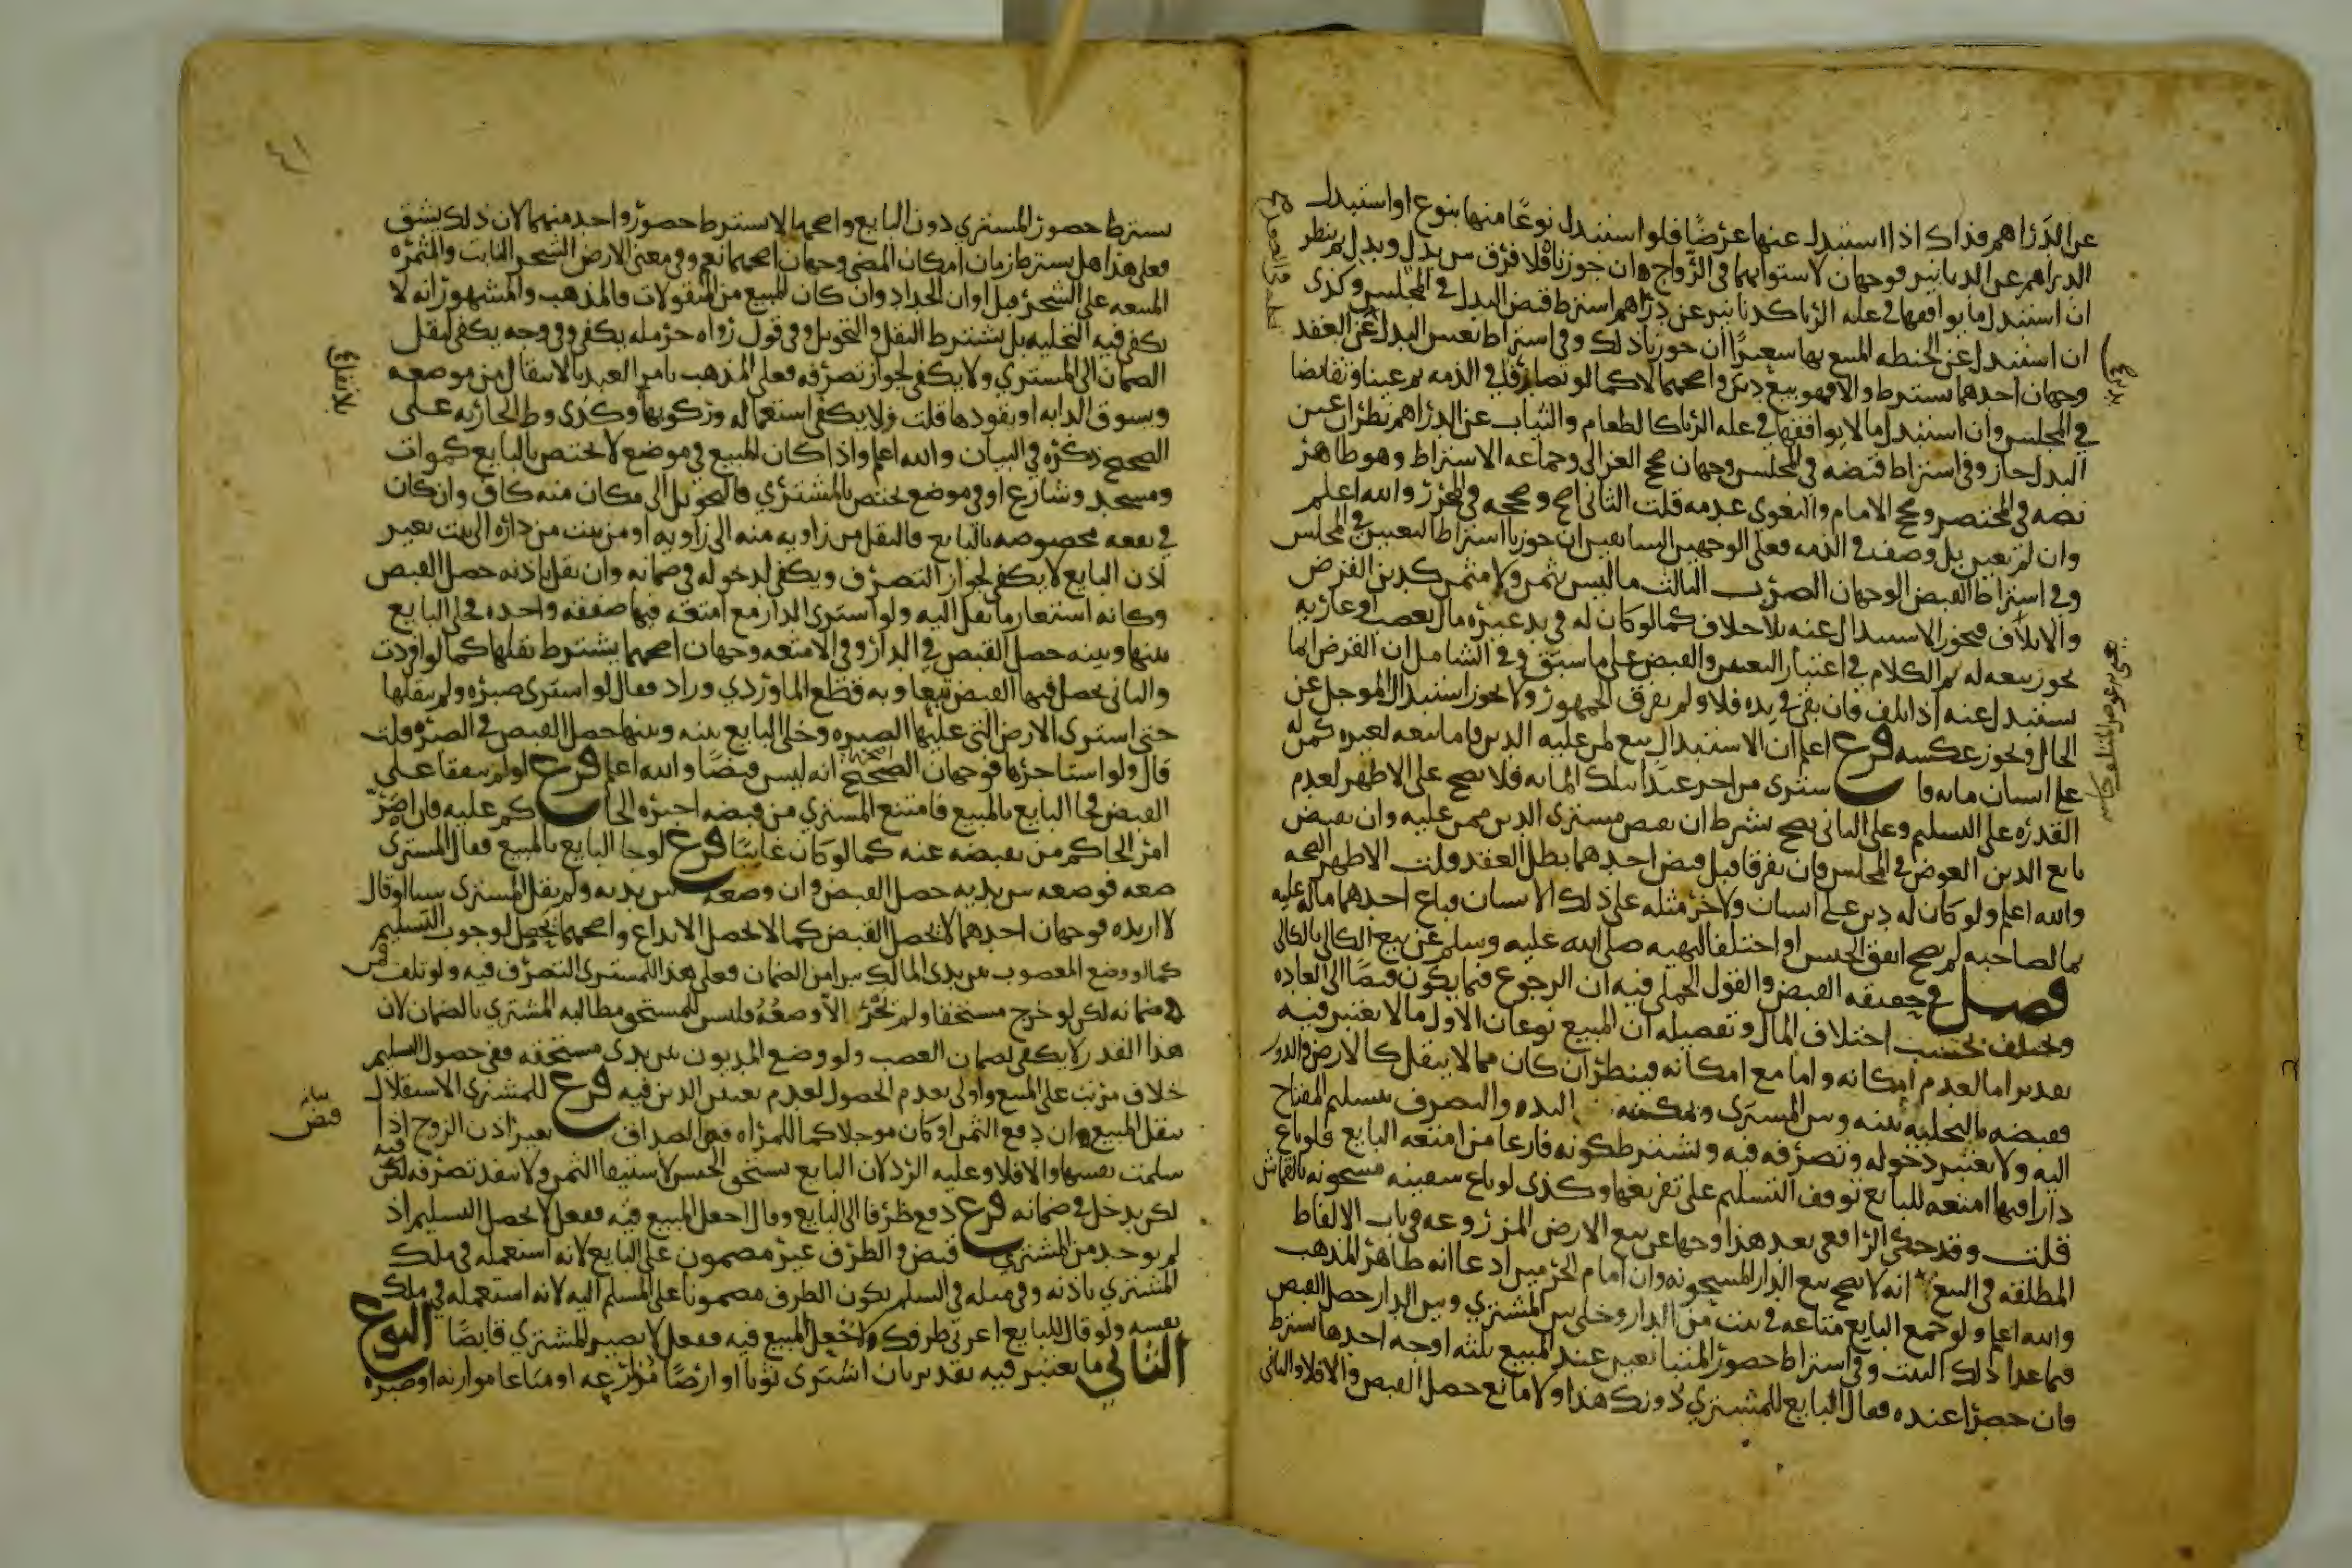 عن الدراهم فذاك اذا استبدل عنها عرضا فلو استبدل نوعا منها بنوع او استبدل
الدراهم عن الدنانير فوجهان لاستوايهما في الرواج فان جوزناه فلا فرق بين بدل وبدل ثم ينظر
ان استبدل ما يوافقها في علة الربا كدنانير عن دراهم اشترط قبض البدل في المجلس وكذى
ان استبدل عن الحنطه المبيع بها شعيرا ان جوزنا ذلك وفي اشتراط تعيين البدل عن العقد
وجهان احدهما يشترط والا فهو بيع دين واصحهما لا كما لو تصارفا في الذمه ثم عينا وتقابضا
في المجلس وان استبدل ما لا يوافقها في علة الربا كالطعام والثياب عن الدراهم نظر ان عين
البدل جاز وفي اشتراط قبضه في المجلس وجهان صحح الغزالي وجماعه الاشتراط وهو ظاهر
نصه في المختصر وصحح الامام والبغوي عدمه قلت الثاني اصح وصححه في المحرر والله اعلم
وان لم يعين بل وصف في الذمه فعلى الوجهين السابقين ان جوزنا اشترط التعيين في المجلس
وفي اشتراط القبض الوجهان الضرب الثالث ما ليس بثمن ولا مثمن كدين القرض
والاتلاف فيجوز الاستبدال عنه بلا خلاف كما لو كان له في يد غيره مال بغصب او عاريه
يجوز بيعه له ثم الكلام في اعتبار التعيين والقبض على ما سبق وفي الشامل ان القرض انما
يستبدل عنه اذا تلف فان بقي في يده فلا ولم يفرق الجمهور ولا يجوز استبدال الموجل عن
الحال ويجوز عكسه فرع اعلم ان الاستبدال بيع لمن عليه الدين فاما بيعه لغيره كمن له
على انسان مايه فاشترى من اخر عبدا بتلك المايه فلا يصح على الاظهر لعدم
القدره على التسليم وعلى الثاني يصح بشرط ان يقبض مشتري الدين ممن عليه وان يقبض
بايع الدين العوض في المجلس فان تفرقا قبل قبض احدهما بطل العقد قلت الاظهر الصحه
والله اعلم ولو كان له دين على انسان ولاخر مثله على ذلك الانسان فباع احدهما ماله عليه
بما لصاحبه لم يصح اتفق الجنس او اختلف لنهيه صلى الله عليه وسلم عن بيع الكالي بالكالي
فصل في حقيقه القبض والقول الجملي فيه ان الرجوع فيما يكون قبضا الى العاده
ويختلف بحسب اختلاف المال وتفصيله ان المبيع نوعان الاول ما لا يعتبر فيه
تقدير اما لعدم امكانه واما مع امكانه فينظر ان كان مما لا ينقل كالارض والدور
فقبضه بالتخليه بينه وبين المشتري وتمكينه من اليد والتصرف بتسليم المفتاح
اليه ولا يعتبر دخوله وتصرفه فيه ويشترط كونه فارغا من امتعه البايع فلو باع
دارا فيها امتعه للبايع توقف التسليم على تفريغها وكذى لو باع سفينه مشحونه بالقماش
قلت وقد حكى الرافعي بعد هذا وجها عن بيع الارض المزروعه في باب الالفاظ
المطلقه في البيع انه لا يصح بيع الدار المشحونه وان امام الحرمين ادعا انه ظاهر المذهب
والله اعلم ولو جمع البايع متاعه في بيت من الدار وخلى بين المشتري وبين الدار حصل القبض
فيما عدا ذلك البيت وفي اشتراط حضور المتبايعين عند المبيع ثلثه اوجه احدها يشترط
فان حضرا عنده فقال البايع للمشتري دونك هذا ولا مانع حصل القبض والا فلا والثاني
٤١
يشترط حضور المشتري دون البايع واصحها لا يشترط حضور واحد منهما لان ذلك يشق
فعلى هذا هل يشترط زمان امكان المضي وجهان اصحهما نعم وفي معنى الارض الشجر الثابت والثمره
المبيعه على الشجر قبل اوان الجداد وان كان المبيع من المنقولات فالمذهب والمشهور انه لا
يكفي فيه التخليه بل يشترط النقل والتحويل وفي قول رواه حرمله يكفي وفي وجه يكفي لنقل
الضمان الى المشتري ولا يكفي لجواز تصرفه فعلى المذهب يامر العبد بالانتقال من موضعه
ويسوق الدابه او يقودها قلت ولا يكفي استعماله وركوبها وكذى وطء الجاريه على
الصحيح ذكره في البيان والله اعلم واذا كان المبيع في موضع لا يختص بالبايع كموات
ومسجد وشارع او في موضع يختص بالمشتري فالتحويل الى مكان منه كاف وان كان
في بقعه مخصوصه بالبايع فالنقل من زاويه منه الى زاويه او من بيت من داره الى بيت بغير
اذن البايع لا يكفي لجواز التصرف ويكفي لدخوله في ضمانه وان نقل باذنه حصل القبض
وكانه استعار ما نقل اليه ولو اشترى الدار مع امتعه فيها صفقه واحده فخلى البايع
بينها وبينه حصل القبض في الدار وفي الامتعه وجهان اصحهما يشترط نقلها كما لو افردت
والثاني يحصل فيها القبض تبعا وبه قطع الماوردي وزاد فقال لو اشترى صبره ولم ينقلها
حتى اشترى الارض التي عليها الصبره وخلى البايع بينه وبينها حصل القبض في الصبره قلت
قال ولو استاجرها فوجهان الصحيح انه ليس قبضا والله اعلم فرع لو لم يتفقا على
القبض فجا البايع بالمبيع فامتنع المشتري من قبضه اجبره الحاكم عليه فان اصر
امر الحاكم من يقبضه عنه كما لو كان غايبا فرع لو جا البايع بالمبيع فقال المشتري
ضعه فوضعه بين يديه حصل القبض وان وضعه بين يديه ولم يقل المشتري شيا او قال
لا اريده فوجهان احدهما لا يحصل القبض كما لا يحصل الايداع واصحهما يحصل لوجوب التسليم
كما لو وضع المغصوب بين يدي المالك يبرا من الضمان فعلى هذا للمشتري التصرف فيه ولو تلف فمن
ضمانه لكن لو خرج مستحقا ولم نجز الا وضعه فليس للمستحق مطالبه المشتري بالضمان لان
هذا القدر لا يكفي لضمان الغصب ولو وضع المديون بين يدي مستحقه ففي حصول التسليم
خلاف مرتب على المبيع واولى بعدم الحصول لعدم تعين الدين فيه فرع للمشتري الاستقلال
بنقل المبيع ان دفع الثمن او كان موجلا كما للمراه قبض الصداق بغير اذن الزوج اذا
سلمت نفسها والا فلا وعليه الرد لان البايع يستحق الحبس لاستيفا الثمن ولا ينفذ تصرفه فيه لكن
لكن يدخل في ضمانه فرع دفع ظرفا الى البايع وقال اجعل المبيع فيه ففعل لا يحصل التسليم اذ
لم يوجد من المشتري قبض والظرف غير مضمون على البايع لانه استعمله في ملك
المشتري باذنه وفي مثله في السلم يكون الظرف مضمونا على المسلم اليه لانه استعمله في ملك
نفسه ولو قال للبايع اعرني ظرفك واجعل المبيع فيه ففعل لا يصير المشتري قابضا النوع
الثاني ما يعتبر فيه تقدير بان اشترى ثوبا او ارضا مذارعه او متاعا موازنه او صبره